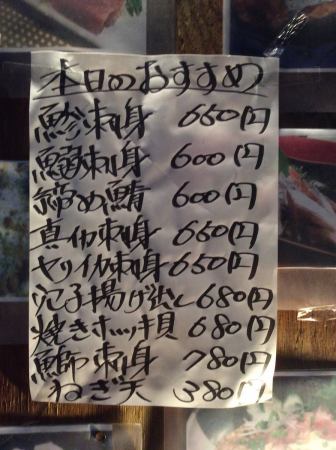 本日のおすすめ
鯵刺身 650円
鰯刺身 600円
締め鯖 600円
真イカ刺身 650円
ヤリイカ刺身 650円
穴子揚げ出し 680円
焼きホッキ貝 680円
鰤刺身 780円
ねぎ天 380円